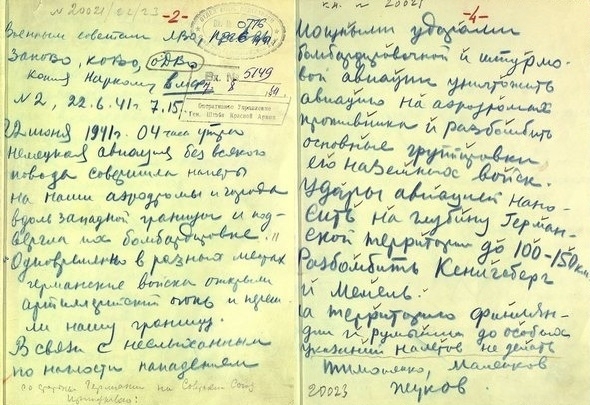 N 20021/22/23
-2-
Военным советам ЛВО, ПрибВО,
ЗапОВО, КОВО, ОдВО
Копия Наркому
вмф
Вх. № 5149
Оперативное Управление
Ген. Штаба Красной Армии
N 2, 22.6.41 г. 7.15
22 июня 1941г. 04 часа утра
немецкая авиация без всякого
повода совершила налеты
на наши аэродромы и города
вдоль западной границы и под-
вергла их бомбардировке.
Одновременно в разных местах
германские войска открыли
артиллерийский огонь и переш-
ли нашу границу.
В связи с неслыханным
по наглости нападением
со стороны Германии на Советский Союз
20021
-4-
Мощными ударами
бомбардировочной и штурмо-
вой авиации уничтожить
авиацию на аэродромах
противника и разбомбить
основные группировки
его наземных войск.
Удары авиацией нано-
сить на глубину Герман-
ской территории до 100-150 км.
Разбомбить Кенигсберг
и Мемель.
На территорию Финлян-
дии и Румынии до особых
указаний налетов не делать
Тимошенко, Маленков
Жуков.
20023